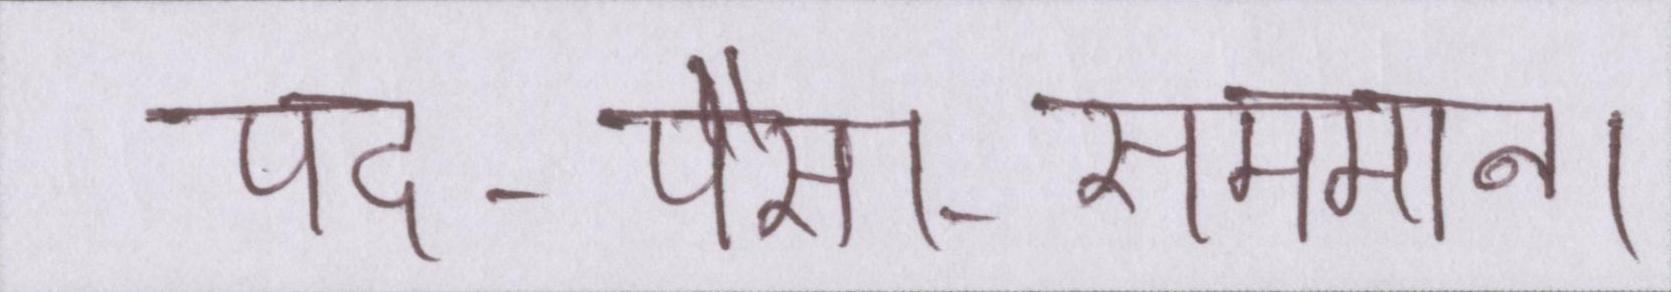 पद - पैसा - सममान।